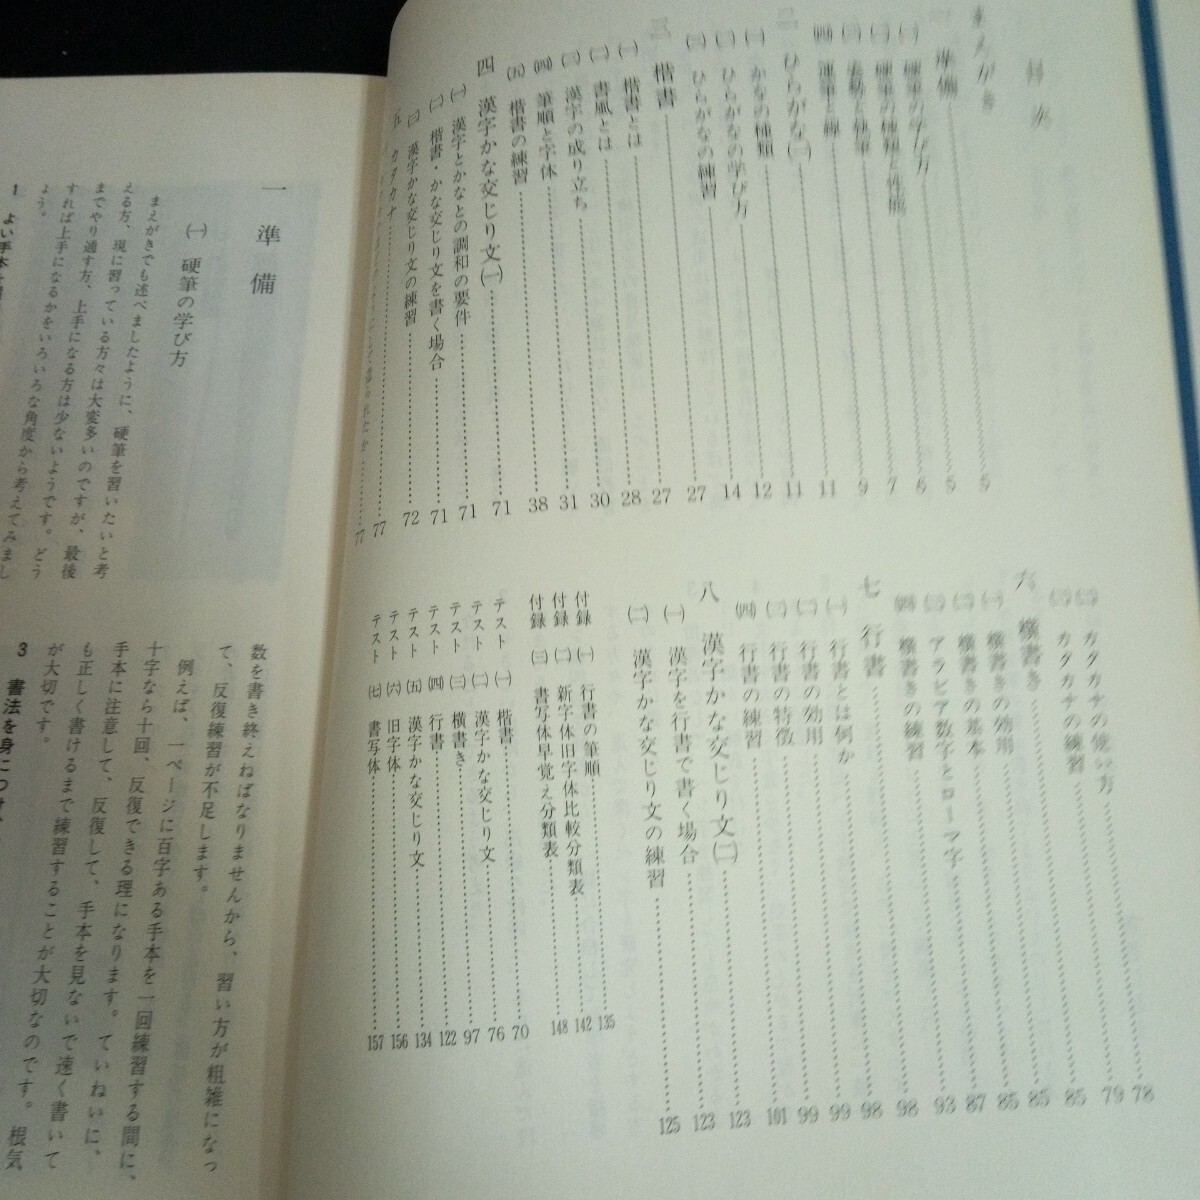 目次
まえがき 5
一 準備 5
㈠ 硬筆の学び方 5
㈡ 硬筆の種類と性能 7
㈢ 姿勢と執筆 9
㈣ 運筆と線 11
二 ひらがな㈠ 11
㈠ かなの種類 12
㈡ ひらがなの学び方 14
㈢ ひらがなの練習 27
三 楷書 27
㈠ 楷書とは 28
㈡ 書風とは 30
㈢ 漢字の成り立ち 31
㈣ 筆順と字体
㈤ 楷書の練習 38
四 漢字かな交じり文㈠ 71
㈠ 漢字とかなとの調和の要件 71
㈡ 楷書・かな交じり文を書く場合 71
㈢ 漢字かな交じり文の練習 72
五 カタカナ 77
77
㈡ カタカナの使い方 78
㈢ カタカナの練習 79
六 横書き 85
㈠ 横書きの効用 85
㈡ 横書きの基本 87
㈢ アラビア数字とローマ字 93
㈣ 横書きの練習 98
七 行書 98
㈠ 行書とは何か 99
㈡ 行書の効用 99
㈢ 行書の特徴 101
㈣ 行書の練習
八 漢字かな交じり文㈡ 123
㈠ 漢字を行書で書く場合 123
㈡ 漢字かな交じり文の練習 125
付録 ㈠ 行書の筆順 135
付録 ㈡ 新字体旧字体比較分類表 142
付録 ㈢ 書写体早覚え分類表 148
テスト ㈠ 楷書 70
テスト ㈡ 漢字かな交じり文 76
テスト ㈢ 横書き 97
テスト ㈣ 行書 122
テスト ㈤ 漢字かな交じり文 134
テスト ㈥ 旧字体 156
テスト ㈦ 書写体 157
一 準備
㈠ 硬筆の学び方
まえがきでも述べましたように、硬筆を習いたいと考
える方、現に習っている方々は大変多いのですが、最後
までやり通す方、上手になる方は少ないようです。どう
すれば上手になるかをいろいろな角度から考えてみまし
ょう。
1 よい手本
数を書き終えねばなりませんから、習い方が粗雑になっ
て、反復練習が不足します。
例えば、一ページに百字ある手本を一回練習する間に、
十字なら十回、反復できる理になります。ていねいに、
手本に注意して、反復して、手本を見ないで速く書いて
も正しく書けるまで練習することが大切なのです。根気
が大切です。
3 書法を身につけ